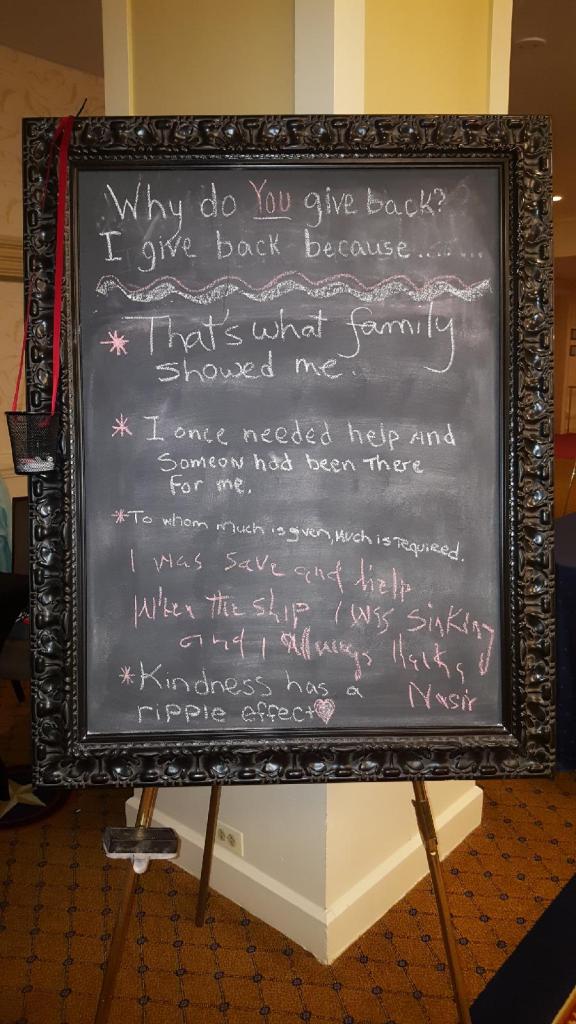 Why do YOU give back?
I give back because........
* That's what family
showed me.
* I once needed help And
Someon had been There
For me.
* To whom much is given, Much is requieed.
I was save and help
When the ship I was sinking
and I Always
Nasir
* Kindness has a
ripple effect